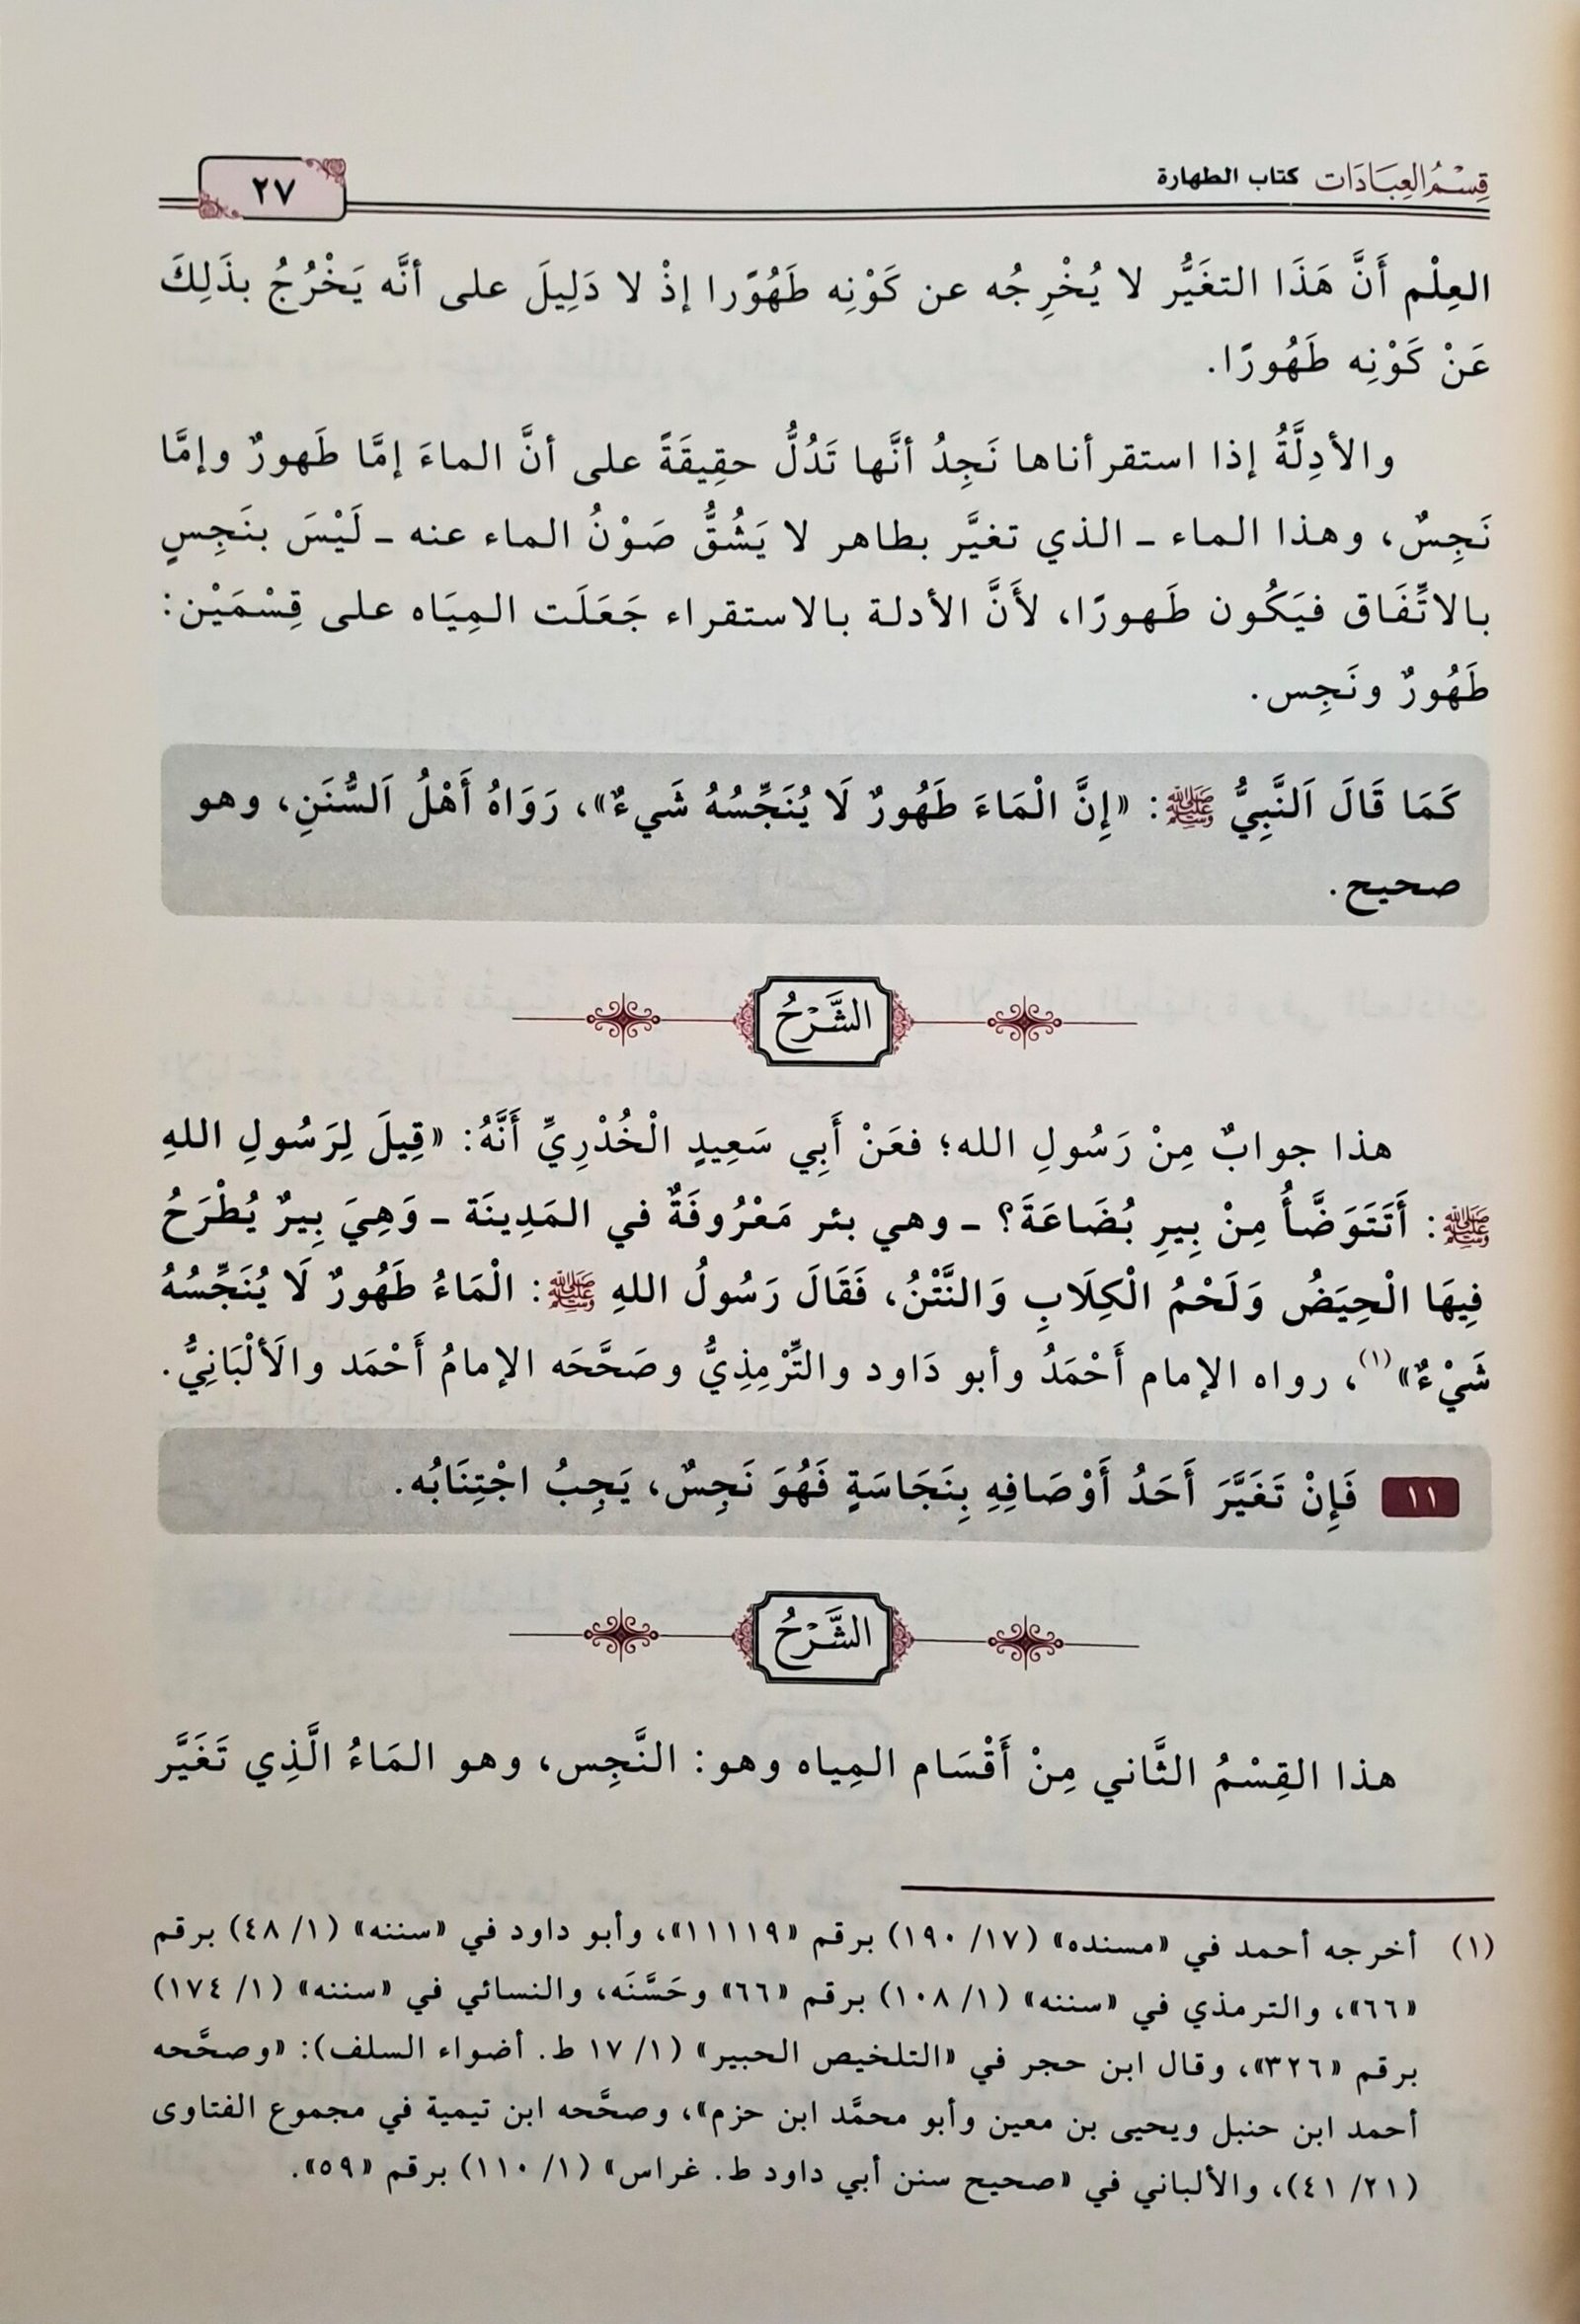 قِسْمُ العِبَادَات كتاب الطهارة
٢٧
العِلْم أَنَّ هَذَا التغَيُّر لا يُخْرِجُه عن كَوْنِه طَهُوَرا إذْ لا دَلِيلَ على أنَّه يَخْرُجُ بذَلِكَ
عَنْ كَوْنِه طَهُورًا.
والأدِلَّةُ إذا استقرأناها نَجِدُ أنَّها تَدُلُّ حقِيقَةً على أنَّ الماءَ إمَّا طَهورٌ وإمَّا
نَجِسٌ، وهذا الماء ـ الذي تغيَّر بطاهر لا يَشُقُّ صَوْنُ الماء عنه ـ لَيْسَ بنَجِسٍ
بالاتِّفَاق فيَكُون طَهورًا، لأَنَّ الأدلة بالاستقراء جَعَلَت المِيَاه على قِسْمَيْن:
طَهُورٌ ونَجِس.
كَمَا قَالَ اَلنَّبِيُّ ﷺ: «إِنَّ الْمَاءَ طَهُورٌ لَا يُنَجِّسُهُ شَيءٌ»، رَوَاهُ أَهْلُ اَلسُّنَنِ، وهو
صحيح.
الشَّرْحُ
هذا جوابٌ مِنْ رَسُولِ الله؛ فعَنْ أَبِي سَعِيدٍ الْخُدْرِيِّ أَنَّهُ: «قِيلَ لِرَسُولِ اللهِ
ﷺ: أَتَتَوَضَّأُ مِنْ بِيرِ بُضَاعَةَ؟ ـ وهي بئر مَعْرُوفَةٌ في المَدِينَة ـ وَهِيَ بِيرٌ يُطْرَحُ
فِيهَا الْحِيَضُ وَلَحْمُ الْكِلَابِ وَالنَّتْنُ، فَقَالَ رَسُولُ اللهِ ﷺ: الْمَاءُ طَهُورٌ لَا يُنَجِّسُهُ
شَيْءٌ»(١)، رواه الإمام أَحْمَدُ وأبو دَاود والتِّرْمِذِيُّ وصَحَّحَه الإمامُ أَحْمَد والَألْبَانِيُّ.
١١ فَإِنْ تَغَيَّرَ أَحَدُ أَوْصَافِهِ بِنَجَاسَةٍ فَهُوَ نَجِسٌ، يَجِبُ اجْتِنَابُه.
الشَّرْحُ
هذا القِسْمُ الثَّاني مِنْ أَقْسَام المِياه وهو: النَّجِس، وهو المَاءُ الَّذِي تَغَيَّر
(١) أخرجه أحمد في «مسنده» (١٧/ ١٩٠) برقم «١١١١٩»، وأبو داود في «سننه» (١/ ٤٨) برقم
«٦٦»، والترمذي في «سننه» (١/ ١٠٨) برقم «٦٦» وحَسَّنَه، والنسائي في «سننه» (١/ ١٧٤)
برقم «٣٢٦»، وقال ابن حجر في «التلخيص الحبير» (١/ ١٧ ط. أضواء السلف): «وصحَّحه
أحمد ابن حنبل ويحيى بن معين وأبو محمَّد ابن حزم»، وصحَّحه ابن تيمية في مجموع الفتاوى
(٢١/ ٤١)، والألباني في «صحيح سنن أبي داود ط. غراس» (١/ ١١٠) برقم «٥٩».